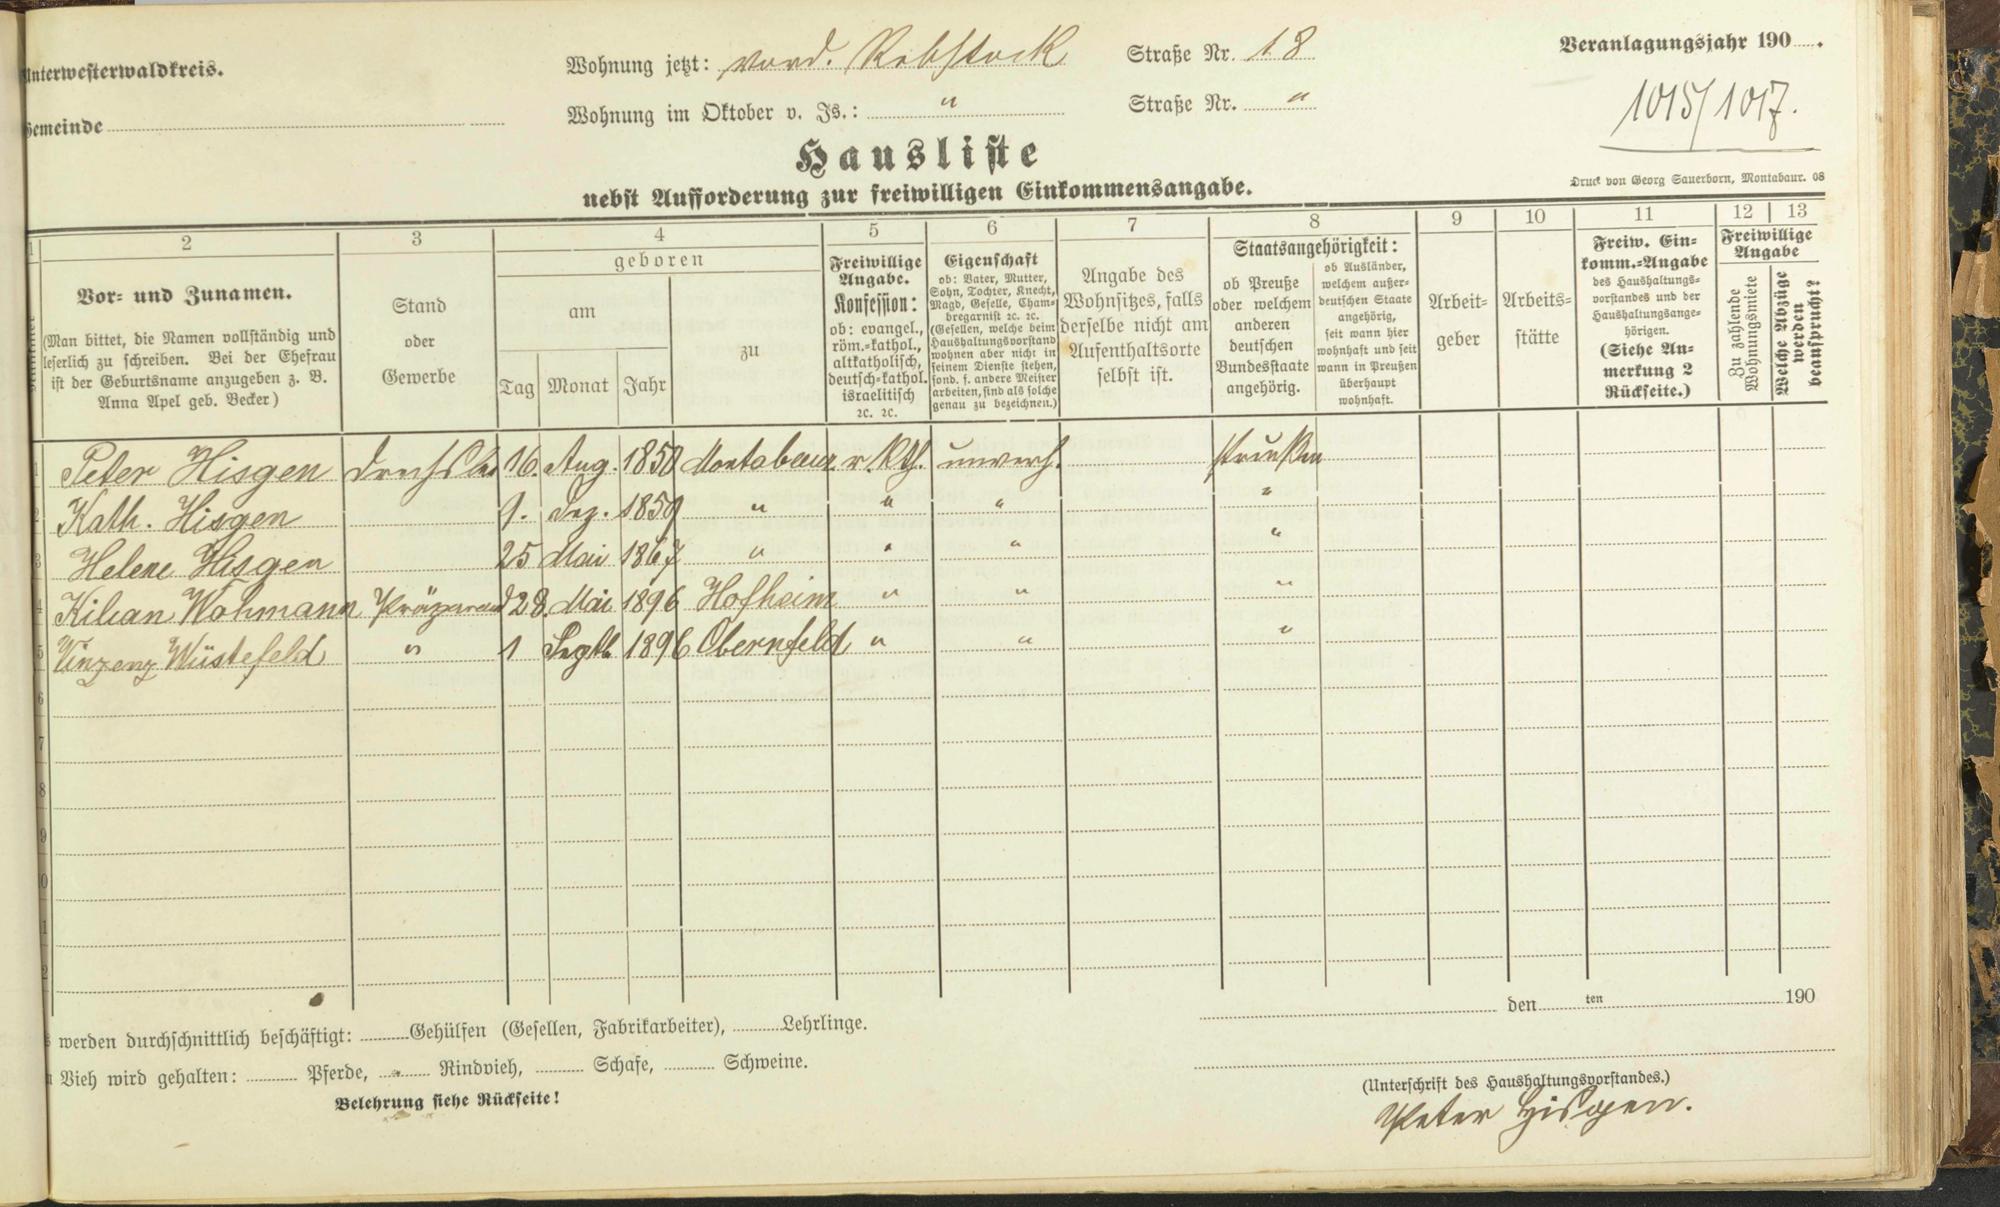 Unterwesterwaldkreis.
Gemeinde
Wohnung jetzt: vord. Rebstock Straße Nr. 18
Wohnung im Oktober v. Js.: " Straße Nr. "
Veranlagungsjahr 190 .
1015/1017.
Hausliste
nebst Aufforderung zur freiwilligen Einkommensangabe.
Druck von Georg Sauerborn, Montabaur. 08
1 2 3 4 5 6 7 8 9 10 11 12 13
Nummer
Vor- und Zunamen.
(Man bittet, die Namen vollständig und
leserlich zu schreiben. Bei der Ehefrau
ist der Geburtsname anzugeben z. B.
Anna Apel geb. Becker)
Stand
oder
Gewerbe
geboren
am
Tag Monat Jahr
zu
Freiwillige
Angabe.
Konfession:
ob: evangel.,
röm.-kathol.,
altkatholisch,
deutsch-kathol.
israelitisch
ꝛc. ꝛc.
Eigenschaft
ob: Vater, Mutter,
Sohn, Tochter, Knecht,
Magd, Geselle, Cham-
bregarnist ꝛc. ꝛc.
(Gesellen, welche beim
Haushaltungsvorstand
wohnen aber nicht in
seinem Dienste stehen,
sond. f. andere Meister
arbeiten, sind als solche
genau zu bezeichnen.)
Angabe des
Wohnsitzes, falls
derselbe nicht am
Aufenthaltsorte
selbst ist.
Staatsangehörigkeit:
ob Preuße
oder welchem
anderen
deutschen
Bundesstaate
angehörig.
ob Ausländer,
welchem außer-
deutschen Staate
angehörig,
seit wann hier
wohnhaft und seit
wann in Preußen
überhaupt
wohnhaft.
Arbeit-
geber
Arbeits-
stätte
Freiw. Ein-
komm.-Angabe
des Haushaltungs-
vorstandes und der
Haushaltungsange-
hörigen.
(Siehe An-
merkung 2
Rückseite.)
Freiwillige
Angabe
Zu zahlende
Wohnungsmiete
Welche Abzüge
werden
gewünscht?
1 Peter Hisgen Drechsler 16. Aug. 1850 Montabaur r. kth. unverh. Preußen
2 Kath. Hisgen 1. Dez. 1859 " " " "
3 Helene Hisgen 25 Mai 1867 " " " "
4 Kilian Wohmann Präparand 28. Mai 1896 Hofheim " " "
5 Vinzenz Wüstefeld " 1 Septb 1896 Obernfeld " " "
6
7
8
9
0
1
2
s werden durchschnittlich beschäftigt: Gehülfen (Gesellen, Fabrikarbeiter), Lehrlinge.
n Vieh wird gehalten: Pferde, Rindvieh, Schafe, Schweine.
Belehrung siehe Rückseite!
den ten 190
(Unterschrift des Haushaltungsvorstandes.)
Peter Hisgen.